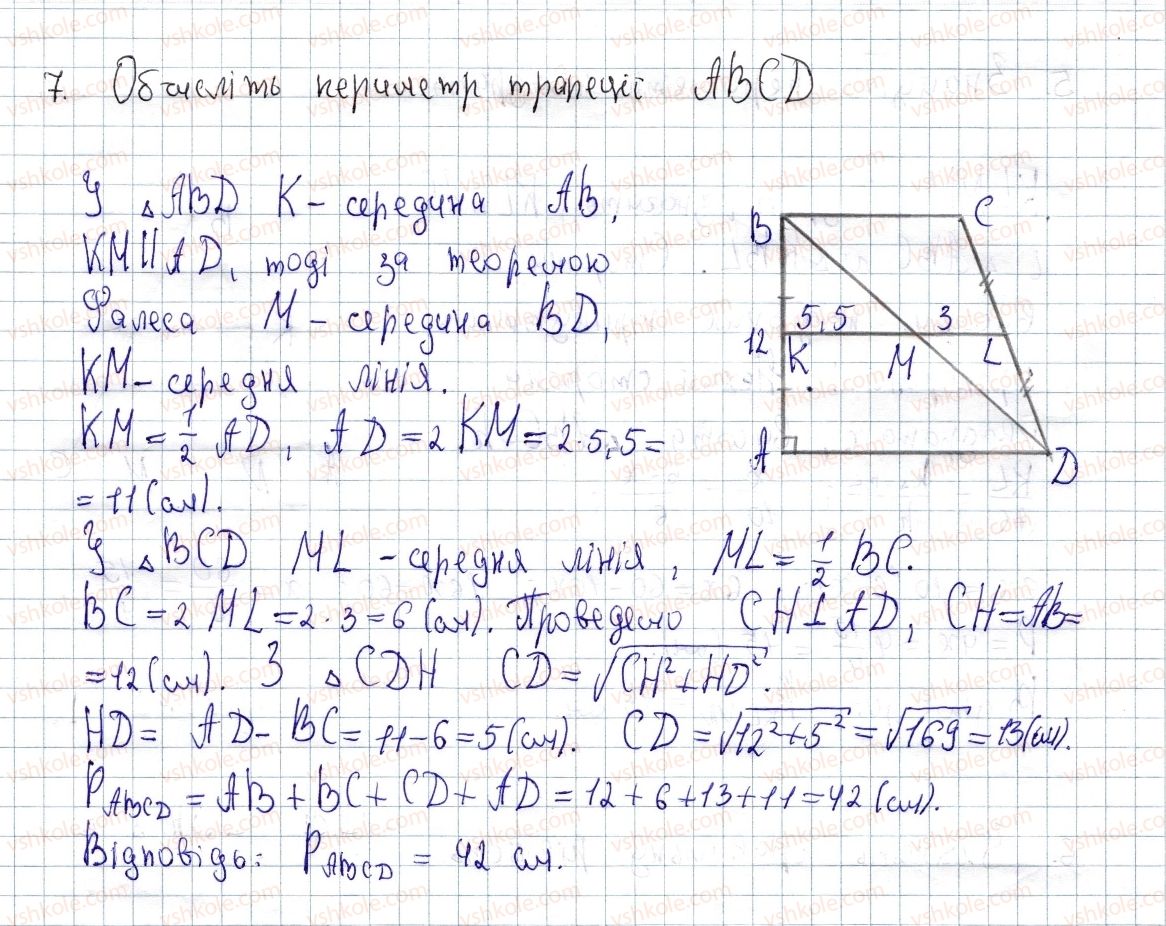 7. Обчисліть периметр трапеції ABCD
У △ABD K – середина AB,
KM||AD, тоді за теоремою
Фалеса M – середина BD,
KM – середня лінія.
KM = 1/2 AD, AD = 2 KM = 2·5,5 =
= 11 (см).
У △BCD ML – середня лінія, ML = 1/2 BC.
BC = 2 ML = 2·3 = 6 (см). Проведемо CH⊥AD, CH = AB =
= 12 (см). З △CDH CD = √(CH² + HD²).
HD = AD – BC = 11 – 6 = 5 (см). CD = √(12² + 5²) = √169 = 13 (см).
P ABCD = AB + BC + CD + AD = 12 + 6 + 13 + 11 = 42 (см).
Відповідь: P ABCD = 42 см.
B C
5,5 3
12 K M L
A D
vshkole.com